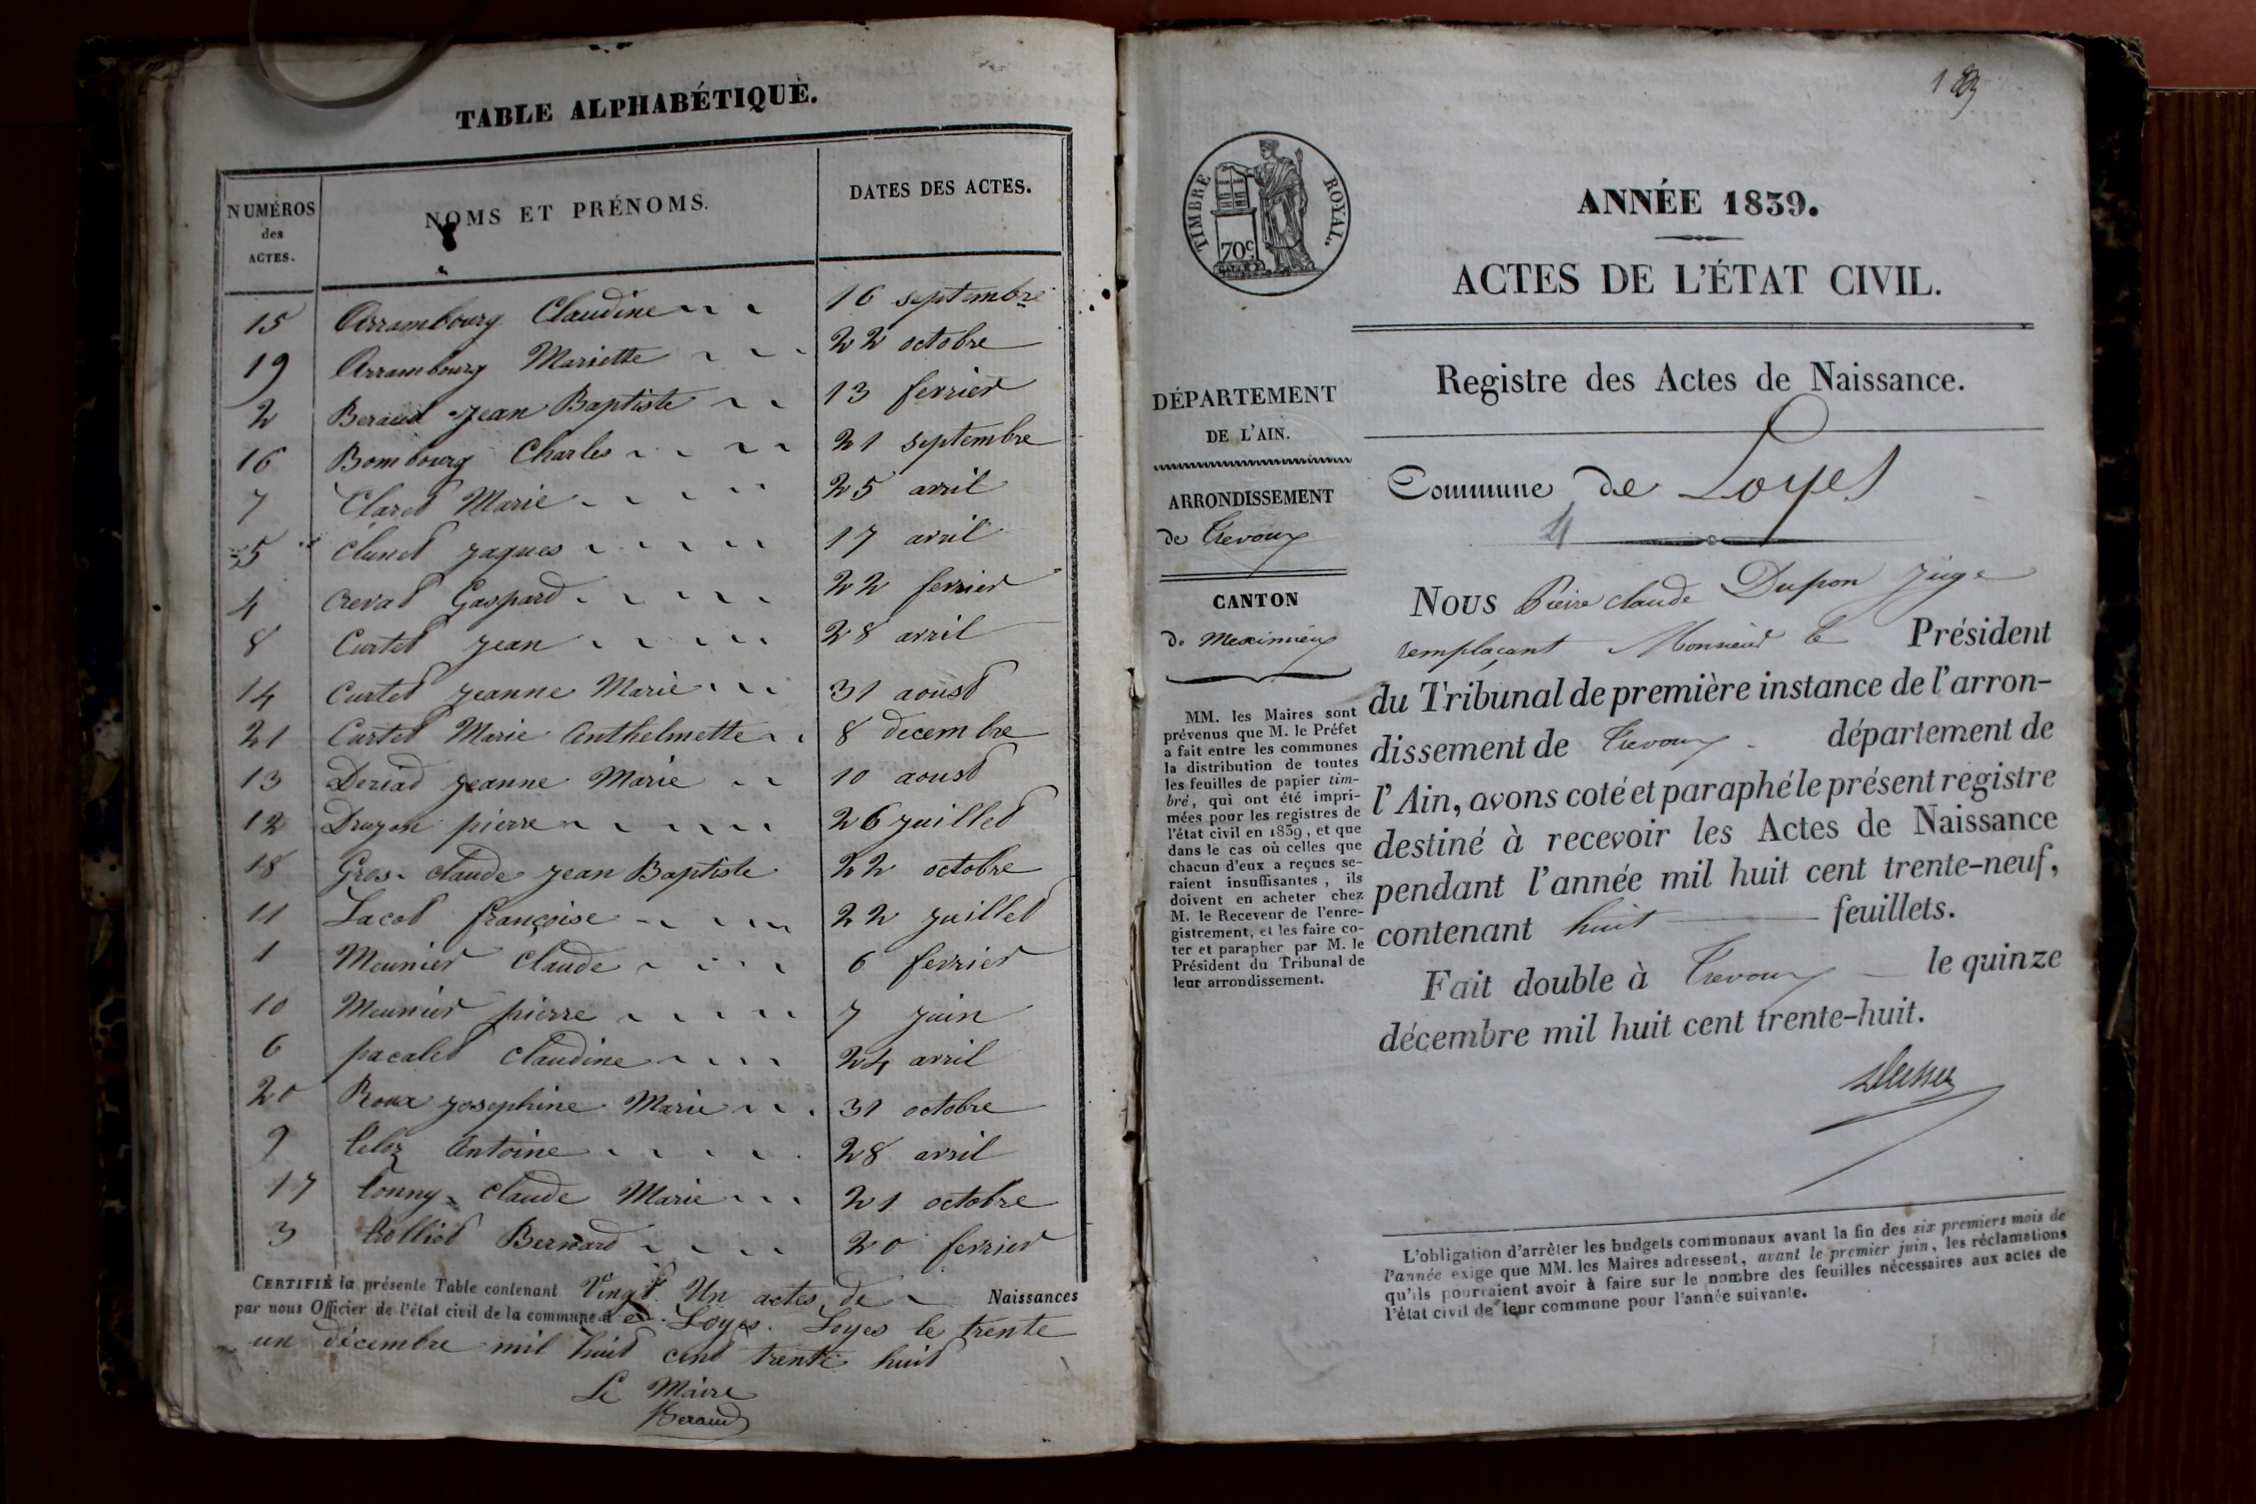 TABLE ALPHABÉTIQUE.
NUMÉROS des ACTES. NOMS ET PRÉNOMS. DATES DES ACTES.
15 Arrambourg Claudine 16 septembre
19 Arrambourg Mariette 22 octobre
2 Beraud Jean Baptiste 13 fevrier
16 Bombourg Charles 21 septembre
7 Claret Marie 25 avril
5 Clunet Jaques 17 avril
4 Crevat Gaspard 22 fevrier
8 Curtet Jean 28 avril
14 Curtet Jeanne Marie 31 aoust
21 Curtet Marie Anthelmette 8 decembre
13 Deriat Jeanne Marie 10 aoust
12 Druzon pierre 26 juillet
18 Gros claude Jean Baptiste 22 octobre
11 Jacob françoise 22 juillet
1 Meunier Claude 6 fevrier
10 Meunier pierre 7 juin
6 pacalet claudine 24 avril
20 Roux Josephine Marie 31 octobre
9 Antoine 28 avril
17 Tonny Claude Marie 21 octobre
3 Trolliet Bernard 20 fevrier
CERTIFIÉ la présente Table contenant Vingt Un actes de Naissances
par nous Officier de l'état civil de la commune de Loyes. Loyes le trente
un décembre mil huit cent trente huit
Le Maire
Beraud
189
TIMBRE ROYAL.
70c
ANNÉE 1839.
ACTES DE L'ÉTAT CIVIL.
Registre des Actes de Naissance.
DÉPARTEMENT
DE L'AIN.
ARRONDISSEMENT
de Trevoux
CANTON
de Meximieux
MM. les Maires sont
prévenus que M. le Préfet
a fait entre les communes
la distribution de toutes
les feuilles de papier tim-
bré, qui ont été impri-
mées pour les registres de
l'état civil en 1839, et que
dans le cas où celles que
chacun d'eux a reçues se-
raient insuffisantes, ils
doivent en acheter chez
M. le Receveur de l'enre-
gistrement, et les faire co-
ter et parapher par M. le
Président du Tribunal de
leur arrondissement.
Commune de Loyes
Nous Pierre claude Dupon Juge
remplaçant Monsieur le Président
du Tribunal de première instance de l'arron-
dissement de Trevoux département de
l'Ain, avons coté et paraphé le présent registre
destiné à recevoir les Actes de Naissance
pendant l'année mil huit cent trente-neuf,
contenant huit feuillets.
Fait double à Trevoux le quinze
décembre mil huit cent trente-huit.
L'obligation d'arrêter les budgets communaux avant la fin des six premiers mois de
l'année exige que MM. les Maires adressent, avant le premier juin, les réclamations
qu'ils pourraient avoir à faire sur le nombre des feuilles nécessaires aux actes de
l'état civil de leur commune pour l'année suivante.